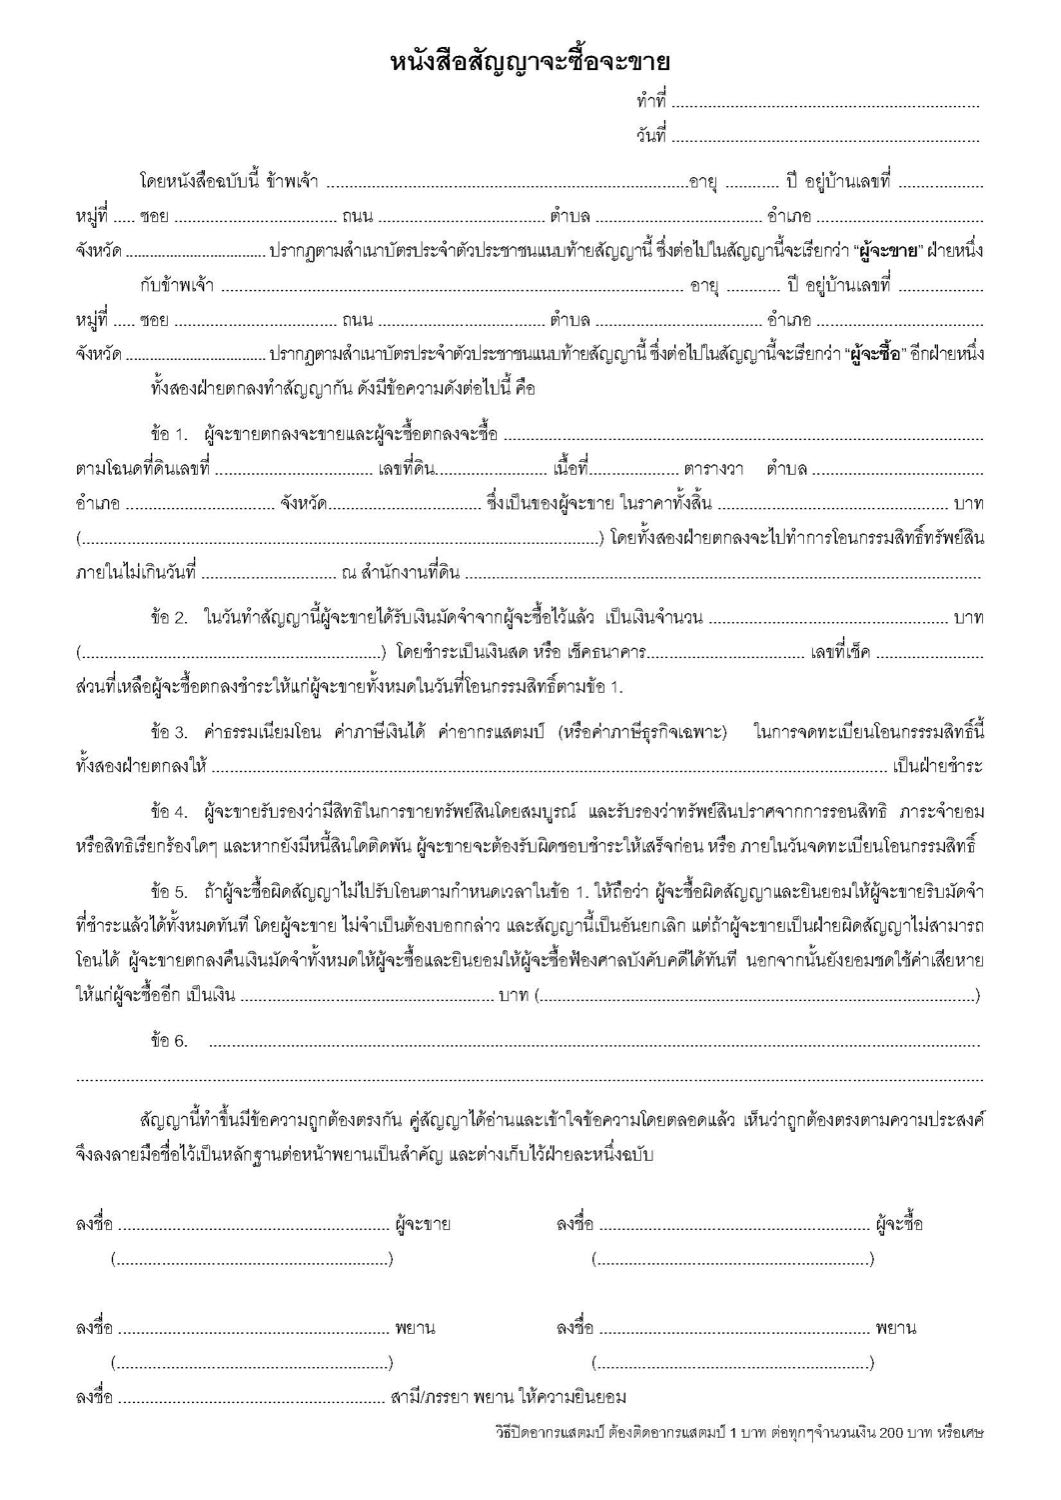 หนังสือสัญญาจะซื้อจะขาย
ทำที่ ....................................................................
วันที่ ....................................................................
โดยหนังสือฉบับนี้ ข้าพเจ้า ................................................................................อายุ ............ ปี อยู่บ้านเลขที่ ...................
หมู่ที่ ..... ซอย .................................... ถนน ..................................... ตำบล ..................................... อำเภอ .....................................
จังหวัด .................................... ปรากฏตามสำเนาบัตรประจำตัวประชาชนแนบท้ายสัญญานี้ ซึ่งต่อไปในสัญญานี้จะเรียกว่า “ผู้จะขาย” ฝ่ายหนึ่ง
กับข้าพเจ้า ...................................................................................................... อายุ ............ ปี อยู่บ้านเลขที่ ...................
หมู่ที่ ..... ซอย .................................... ถนน ..................................... ตำบล ..................................... อำเภอ .....................................
จังหวัด .................................... ปรากฏตามสำเนาบัตรประจำตัวประชาชนแนบท้ายสัญญานี้ ซึ่งต่อไปในสัญญานี้จะเรียกว่า “ผู้จะซื้อ” อีกฝ่ายหนึ่ง
ทั้งสองฝ่ายตกลงทำสัญญากัน ดังมีข้อความดังต่อไปนี้ คือ
ข้อ 1. ผู้จะขายตกลงจะขายและผู้จะซื้อตกลงจะซื้อ ..........................................................................................................
ตามโฉนดที่ดินเลขที่ ................................... เลขที่ดิน......................... เนื้อที่.................... ตารางวา ตำบล ......................................
อำเภอ ................................. จังหวัด.................................. ซึ่งเป็นของผู้จะขาย ในราคาทั้งสิ้น ................................................... บาท
(..................................................................................................................) โดยทั้งสองฝ่ายตกลงจะไปทำการโอนกรรมสิทธิ์ทรัพย์สิน
ภายในไม่เกินวันที่ .............................. ณ สำนักงานที่ดิน ..................................................................................................................
ข้อ 2. ในวันทำสัญญานี้ผู้จะขายได้รับเงินมัดจำจากผู้จะซื้อไว้แล้ว เป็นเงินจำนวน ..................................................... บาท
(..................................................................) โดยชำระเป็นเงินสด หรือ เช็คธนาคาร................................... เลขที่เช็ค ........................
ส่วนที่เหลือผู้จะซื้อตกลงชำระให้แก่ผู้จะขายทั้งหมดในวันที่โอนกรรมสิทธิ์ตามข้อ 1.
ข้อ 3. ค่าธรรมเนียมโอน ค่าภาษีเงินได้ ค่าอากรแสตมป์ (หรือค่าภาษีธุรกิจเฉพาะ) ในการจดทะเบียนโอนกรรรมสิทธิ์นี้
ทั้งสองฝ่ายตกลงให้ ..................................................................................................................................................... เป็นฝ่ายชำระ
ข้อ 4. ผู้จะขายรับรองว่ามีสิทธิในการขายทรัพย์สินโดยสมบูรณ์ และรับรองว่าทรัพย์สินปราศจากการรอนสิทธิ ภาระจำยอม
หรือสิทธิเรียกร้องใดๆ และหากยังมีหนี้สินใดติดพัน ผู้จะขายจะต้องรับผิดชอบชำระให้เสร็จก่อน หรือ ภายในวันจดทะเบียนโอนกรรมสิทธิ์
ข้อ 5. ถ้าผู้จะซื้อผิดสัญญาไม่ไปรับโอนตามกำหนดเวลาในข้อ 1. ให้ถือว่า ผู้จะซื้อผิดสัญญาและยินยอมให้ผู้จะขายริบมัดจำ
ที่ชำระแล้วได้ทั้งหมดทันที โดยผู้จะขาย ไม่จำเป็นต้องบอกกล่าว และสัญญานี้เป็นอันยกเลิก แต่ถ้าผู้จะขายเป็นฝ่ายผิดสัญญาไม่สามารถ
โอนได้ ผู้จะขายตกลงคืนเงินมัดจำทั้งหมดให้ผู้จะซื้อและยินยอมให้ผู้จะซื้อฟ้องศาลบังคับคดีได้ทันที นอกจากนั้นยังยอมชดใช้ค่าเสียหาย
ให้แก่ผู้จะซื้ออีก เป็นเงิน ........................................................ บาท (................................................................................................)
ข้อ 6. ..........................................................................................................................................................................
........................................................................................................................................................................................................
สัญญานี้ทำขึ้นมีข้อความถูกต้องตรงกัน คู่สัญญาได้อ่านและเข้าใจข้อความโดยตลอดแล้ว เห็นว่าถูกต้องตรงตามความประสงค์
จึงลงลายมือชื่อไว้เป็นหลักฐานต่อหน้าพยานเป็นสำคัญ และต่างเก็บไว้ฝ่ายละหนึ่งฉบับ
ลงชื่อ ............................................................ ผู้จะขาย ลงชื่อ ............................................................ ผู้จะซื้อ
(............................................................) (............................................................)
ลงชื่อ ............................................................ พยาน ลงชื่อ ............................................................ พยาน
(............................................................) (............................................................)
ลงชื่อ ........................................................... สามี/ภรรยา พยาน ให้ความยินยอม
วิธีปิดอากรแสตมป์ ต้องติดอากรแสตมป์ 1 บาท ต่อทุกๆจำนวนเงิน 200 บาท หรือเศษ